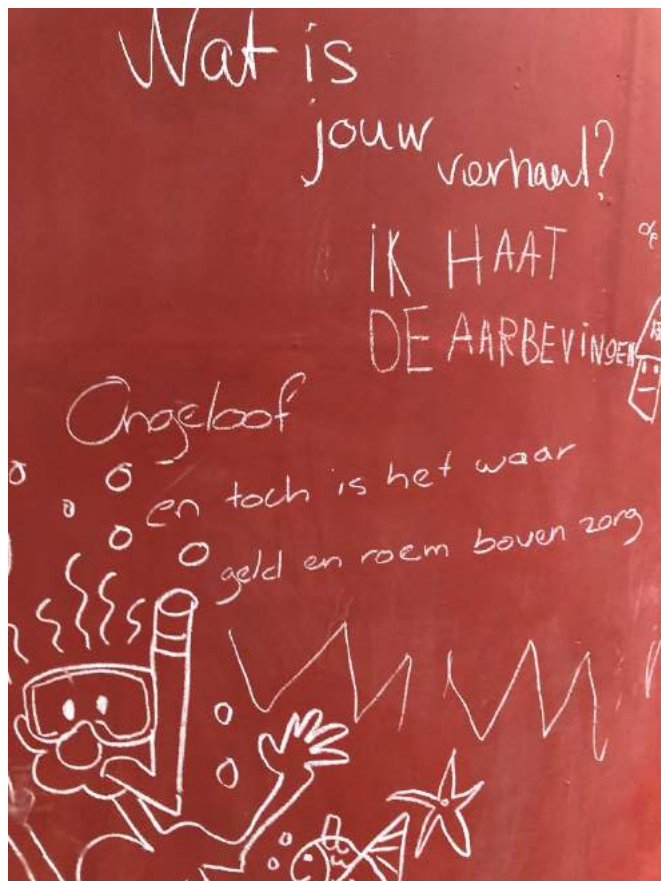 Wat is
jouw verhaal?
iK HAAT
DE AARBEVINGEN
Ongeloof
en toch is het waar
geld en roem boven zorg